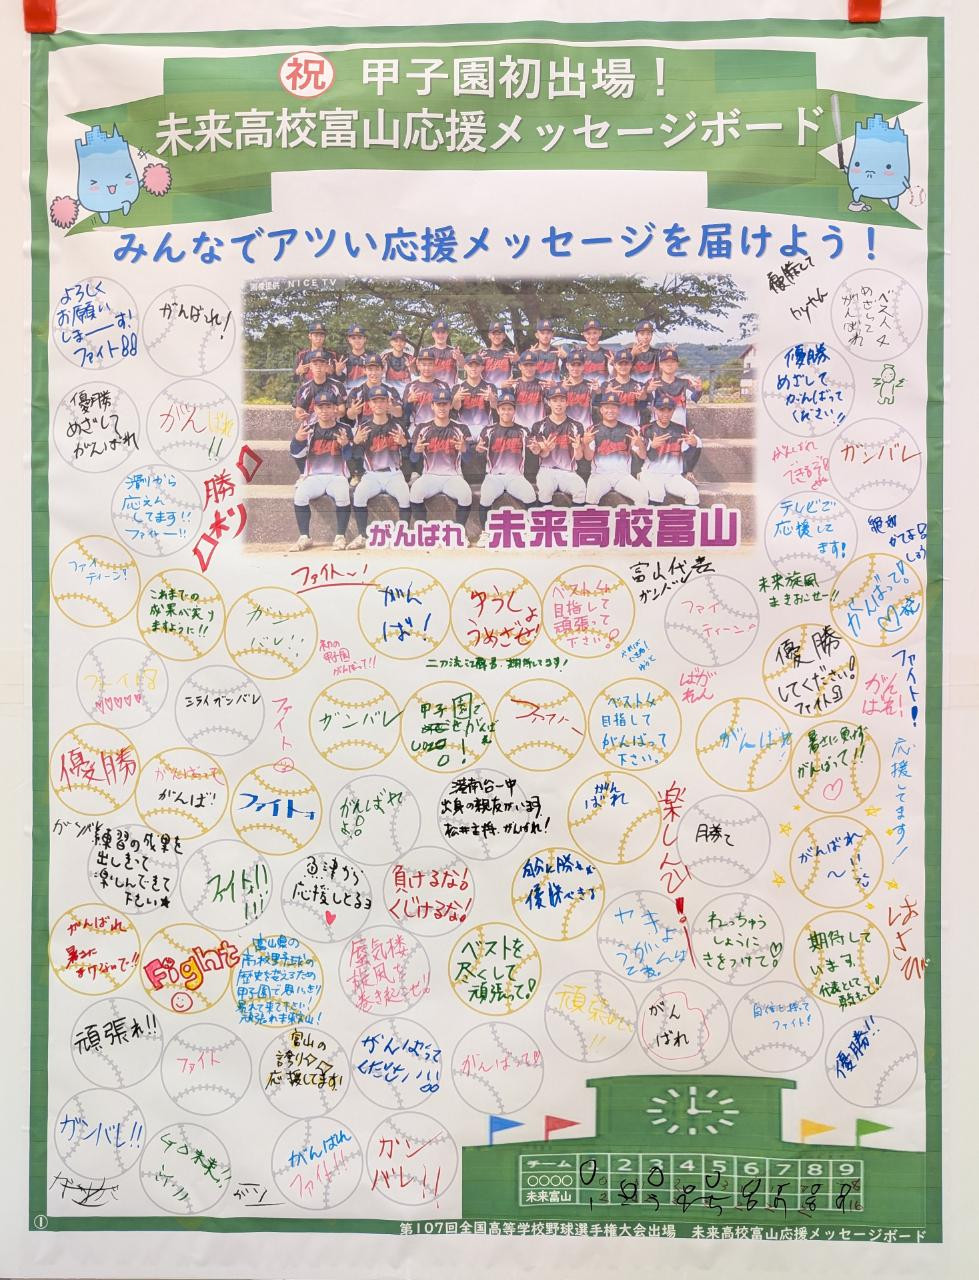 祝 甲子園初出場！
未来高校富山応援メッセージボード
みんなでアツい応援メッセージを届けよう！
画像提供 NICE TV
がんばれ 未来高校富山
よろしく
お願い
しまーす!
ファイト
がんばれ!
優勝
めざして
がんばれ
がんばれ
!!
滑川から
応えん
してます!!
ファイト!!
勝
優勝して
めざして
がんばれ
優勝
めざして
がんばって
ください!!
がんばれ
できるぞ
ガンバレ
テレビで
応援して
ます!
絶対
ファイ
ティーン!
これまでの
成果が実り
ますように!!
ガン
バレ!
ファイト〜!
がん
ば!
ゆうしょ
うめざせ!
ベスト4
目指して
頑張って
下さい。
富山代表
ガンバレ
ファイ
ティーン。
未来旋風
まきおこせー!!
がんばって!
初の
甲子園
がんばって!!
二刀流で勝負、期待してます!
優勝
してください!
ファイト
ファイト!
がん
ばれ!
ミライガンバレ
ファイト
ガンバレ
甲子園で
がんば
れ
ファイト
ベスト4
目指して
がんばって
下さい。
がんばれ
暑さに負けず
がんばって!!
応援してます!
優勝
がんばって
がんば!
ファイト
がんばれ
よ!
港南台一中
出身の親友がいます
松井主将、がんばれ!
がん
ばれ
楽しんで!
勝て
がんばれ
〜!!
ガンバレ
練習の成果を
出しきって
楽しんできて
下さい
ファイト!!
魚津から
応援してるヨ
負けるな!
くじけるな!
自分に勝てば
優勝できる
ねっちゅう
しょうに
きをつけて。
期待して
います。
代表として
がんばれ
暑さに
まけないで!!
Fight
富山県の
高校野球の
歴史を変えるため
甲子園で思いっきり
暴れて来て下さい!
頑張れ未来富山!
蜃気楼
旋風を
巻き起こせ!
ベストを
尽くして
頑張って!
頑張れ
!!
がん
ばれ
自信を持って
ファイト!
優勝!!
頑張れ!!
ファイト
富山の
誇り
応援してます!
がんばって
ください!!
がんばって
ガンバレ!!
がんばれ
ファイト!!
ガン
バレ!!
チーム 1 2 3 4 5 6 7 8 9
○○○○
未来富山
①
第107回全国高等学校野球選手権大会出場 未来高校富山応援メッセージボード